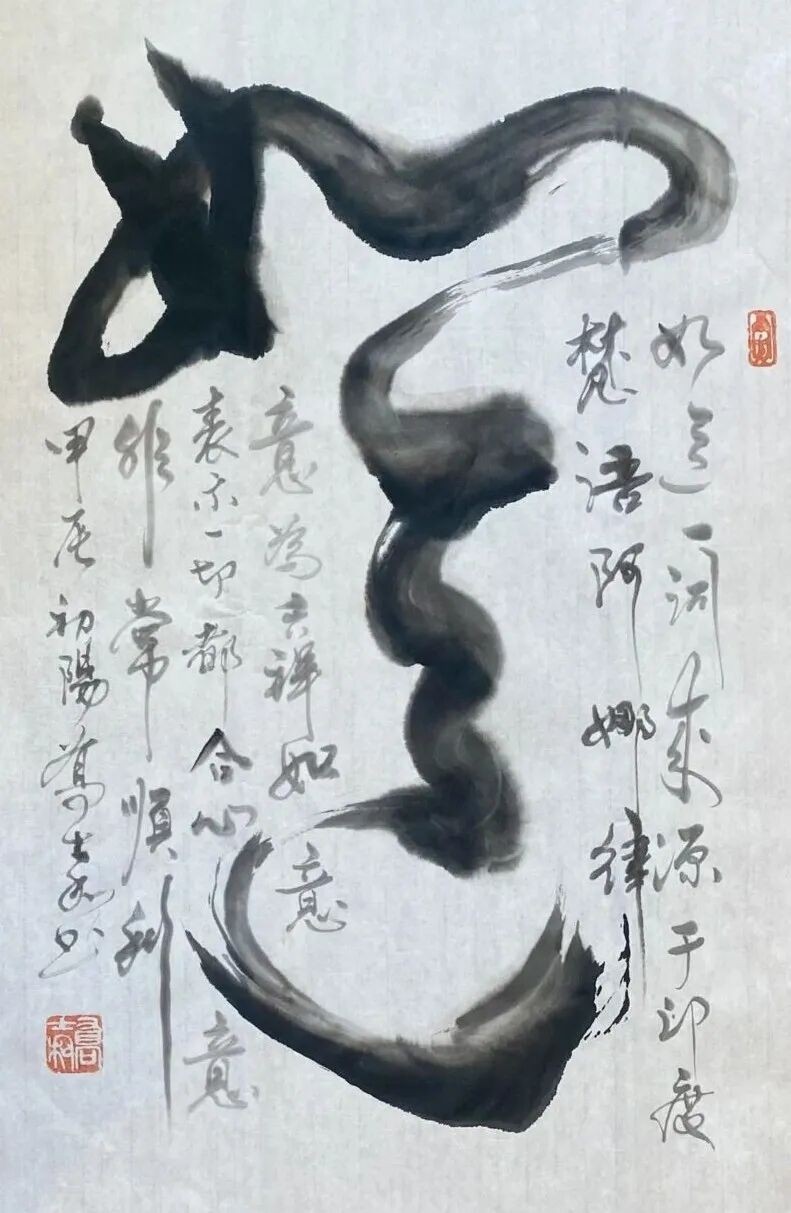 如意
如意一词來源于印度
梵語阿娜律
意為吉祥如意
表示一切都合心意
非常順利
甲辰初陽